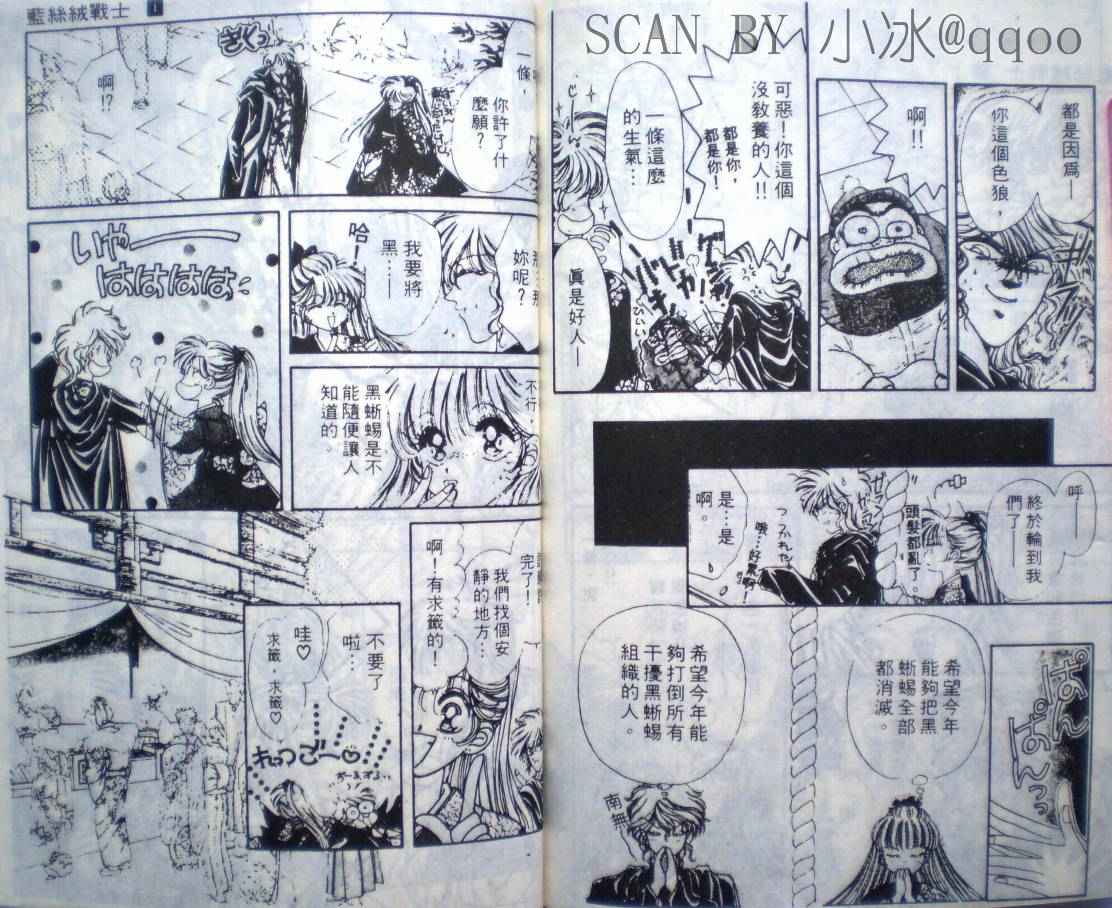 藍絲絨戰士 1
SCAN BY 小冰@qqoo
都是因為—
你這個色狼，
啊!!
可惡！你這個
沒教養的人!!
都是你，
都是你！
一條這麼
的生氣…
真是好人—
呼—
終於輪到我
們了—
頭髮都亂了。
是…是
啊。
ぱん
ぱんっっ
希望今年
能夠把黑
蜥蜴全部
都消滅。
希望今年能
夠打倒所有
干擾黑蜥蜴
組織的人。
南無
一條，
你許了什
麼願？
ぎくっ
啊!?
妳呢？
我要將
黑……
哈！
いやー
はははは
不行，
黑蜥蜴是不
能隨便讓人
知道的。
完了！
我們找個安
靜的地方…
啊！有求籤的！
不要了
啦…
哇♡
求籤，求籤♡
れっつごー♡